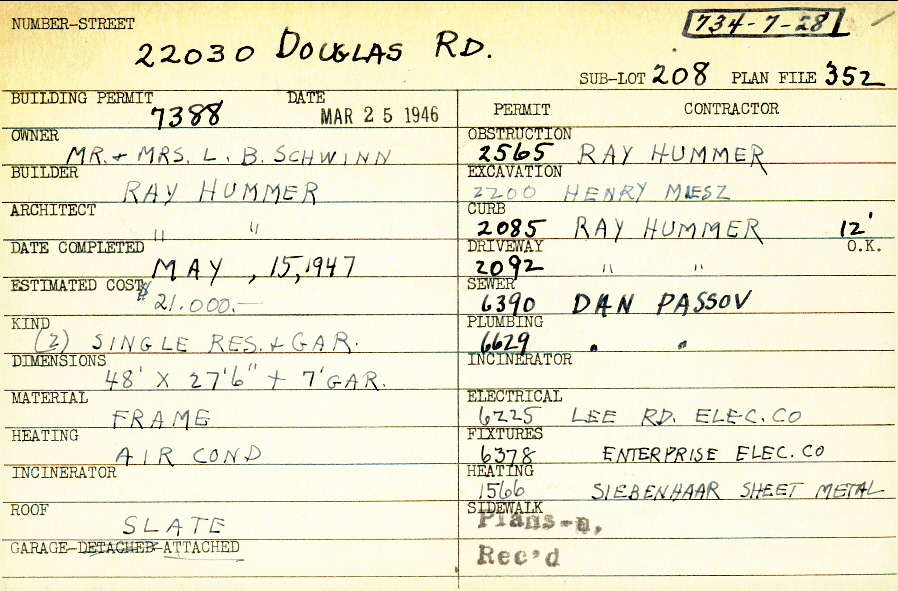 NUMBER-STREET
734-7-28
22030 DOUGLAS RD.
SUB-LOT 208 PLAN FILE 352
BUILDING PERMIT DATE
7388 MAR 25 1946
OWNER
MR. + MRS. L. B. SCHWINN
BUILDER
RAY HUMMER
ARCHITECT
" "
DATE COMPLETED
MAY, 15, 1947
ESTIMATED COST
$21.000.—
KIND
(2) SINGLE RES. + GAR.
DIMENSIONS
48' X 27'6" + 7' GAR.
MATERIAL
FRAME
HEATING
AIR COND
INCINERATOR
ROOF
SLATE
GARAGE-DETACHED-ATTACHED
PERMIT CONTRACTOR
OBSTRUCTION
2565 RAY HUMMER
EXCAVATION
2200 HENRY MIESZ
CURB
2085 RAY HUMMER 12'
DRIVEWAY O.K.
2092 " "
SEWER
6390 DAN PASSOV
PLUMBING
6629 " "
INCINERATOR
ELECTRICAL
6225 LEE RD. ELEC. CO
FIXTURES
6378 ENTERPRISE ELEC. CO
HEATING
1566 SIEBENHAAR SHEET METAL
SIDEWALK
Plans-n,
Rec'd